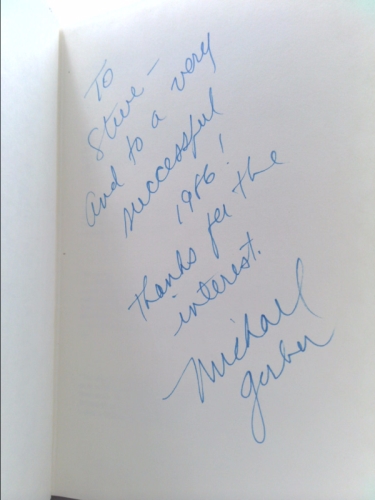 To
Steve -
And to a very
successful
1986!
Thanks for the
interest.
Michael
Gerber